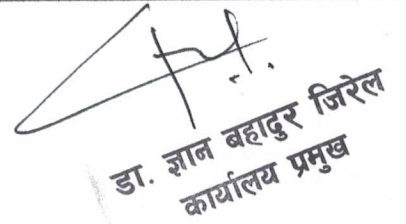 डा. ज्ञान बहादुर जिरेल
कार्यालय प्रमुख